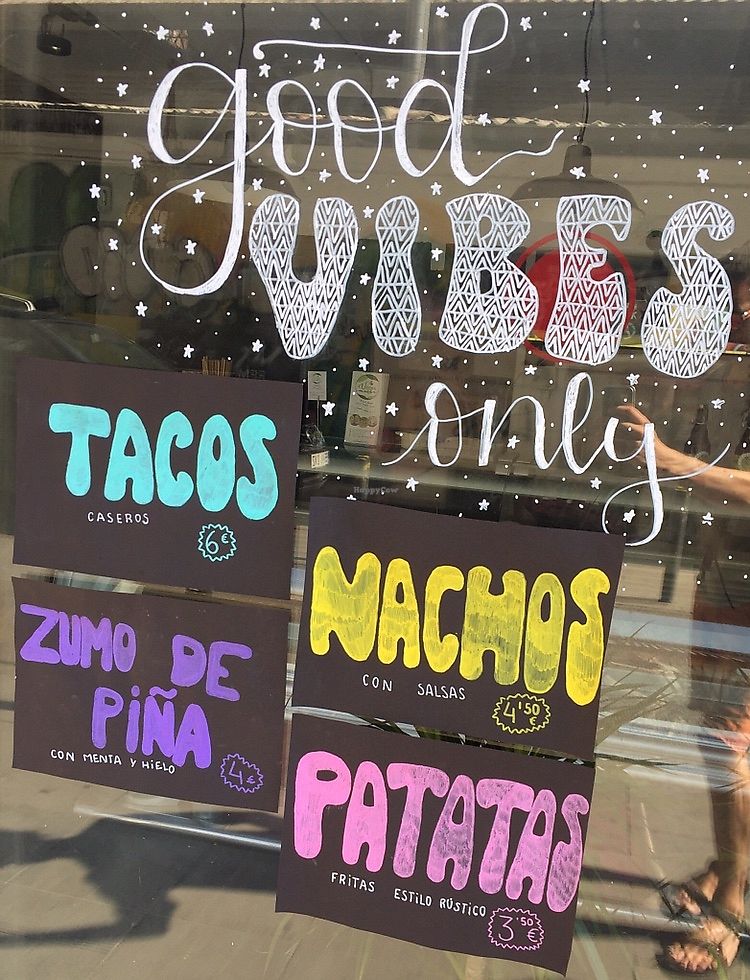 good
VIBES
only
TACOS
CASEROS
6€
NACHOS
CON SALSAS
4'50
€
ZUMO DE
PIÑA
CON MENTA Y HIELO
4€
PATATAS
FRITAS ESTILO RÚSTICO
3'50
€
HappyCow